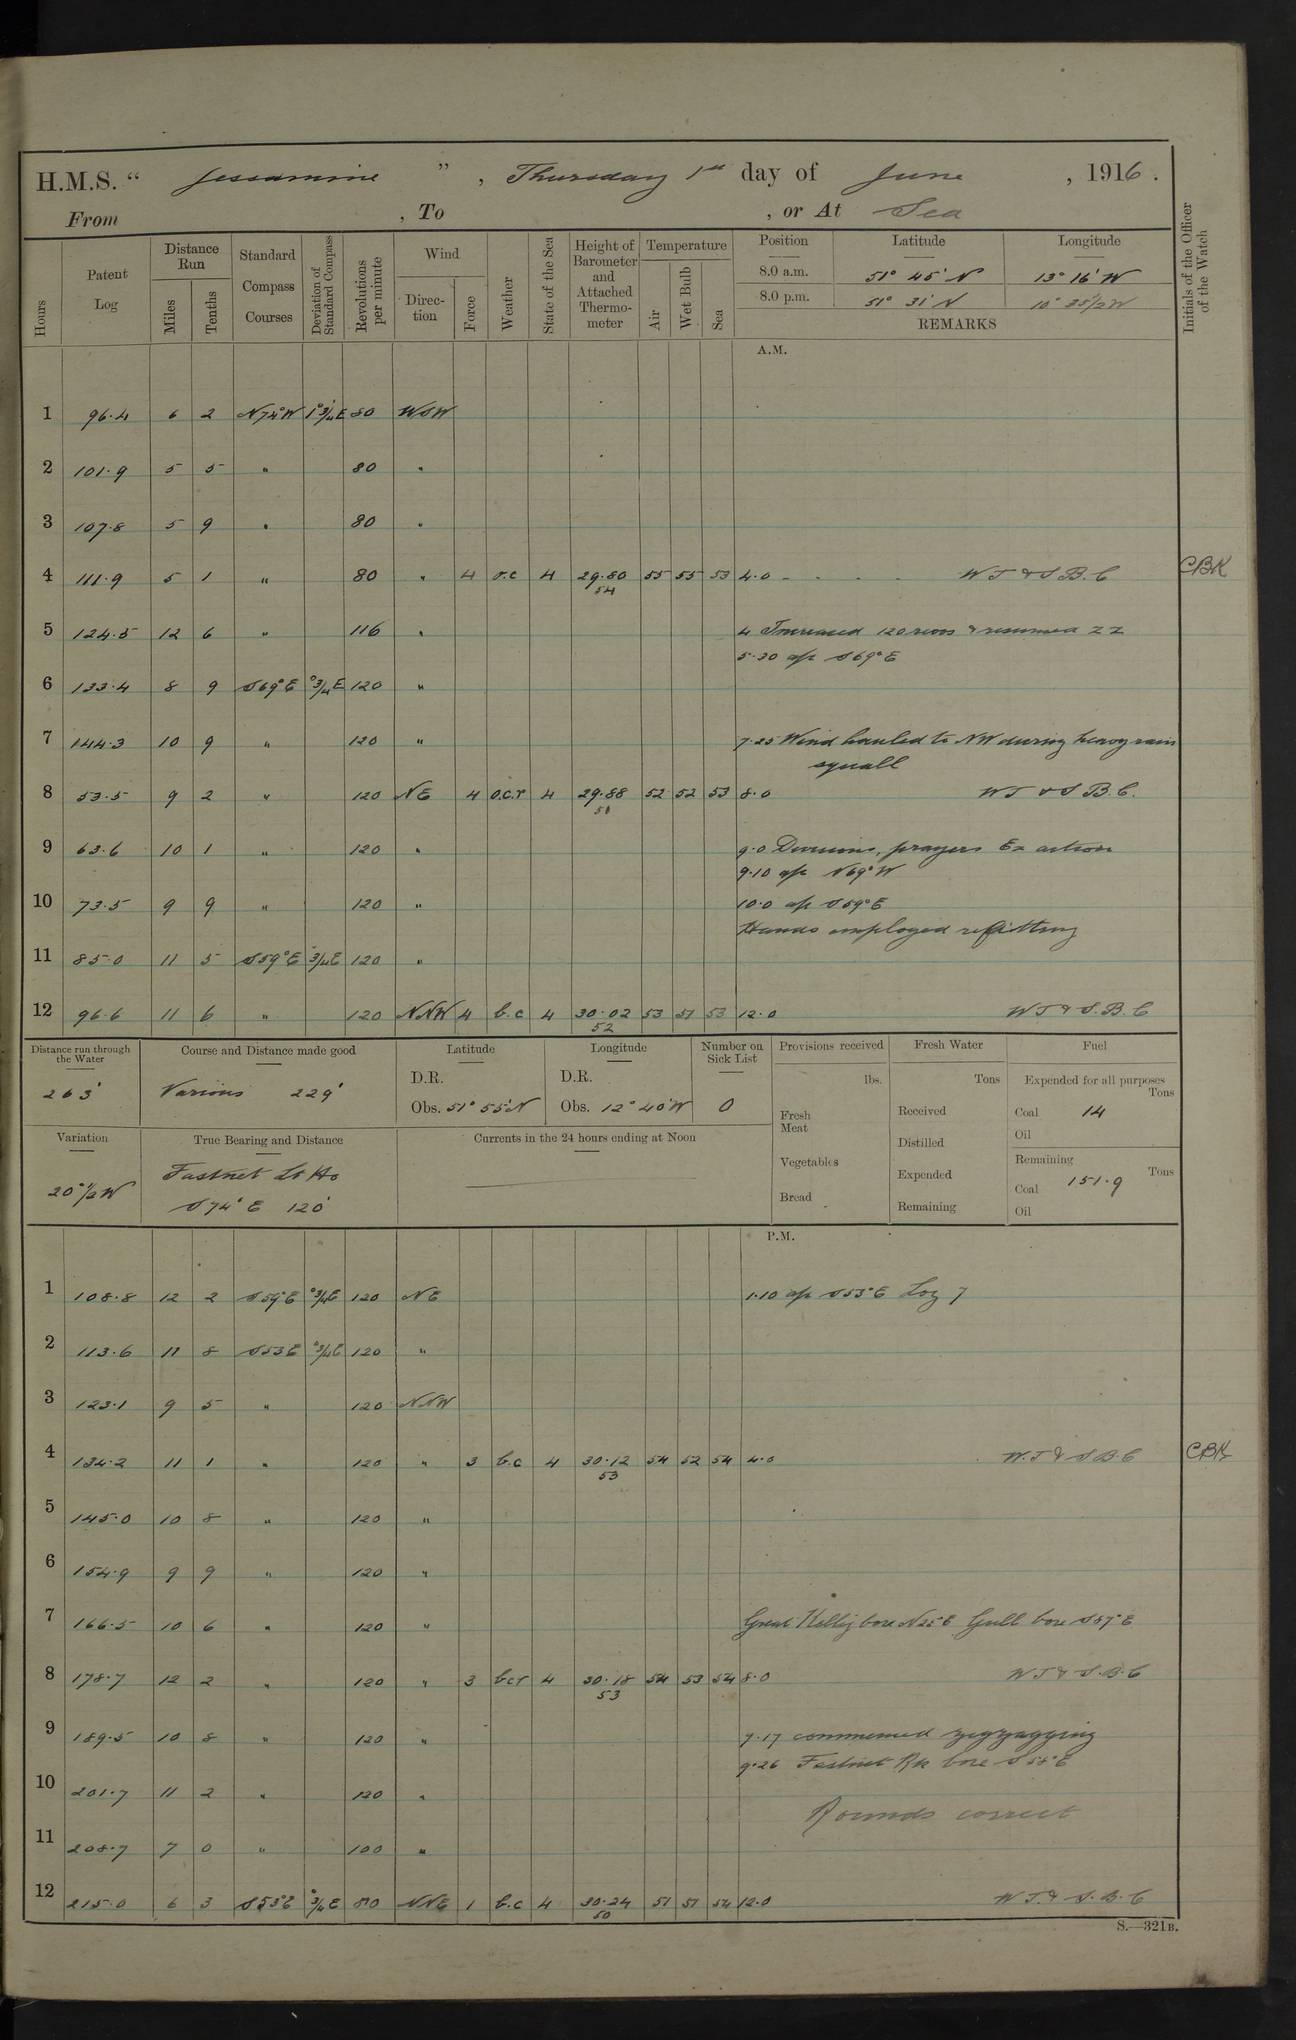 H.M.S. “ Jessamine ” , Thursday 1st day of June , 1916 .
From , To , or At Sea
Hours
Patent Log
Distance Run
Miles
Tenths
Standard Compass Courses
Deviation of Standard Compass
Revolutions per minute
Wind
Direc-tion
Force
Weather
State of the Sea
Height of Barometer and Attached Thermo-meter
Temperature
Air
Wet Bulb
Sea
Position Latitude Longitude
8.0 a.m. 51° 45' N 13° 16' W
8.0 p.m. 51° 31' N 10° 35 1/2 W
REMARKS
Initials of the Officer of the Watch
A.M.
1 96.4 6 2 N74°W 1°3/4E 80 WSW
2 101.9 5 5 " 80 "
3 107.8 5 9 " 80 "
4 111.9 5 1 " 80 " 4 o.c 4 29.80 55 55 53 4.0 - . . . . WT & S B. C CBK
54
5 124.5 12 6 " 116 " 4 Increased 120 revs & resumed ZZ
5.30 a/c S69°E
6 133.4 8 9 S69°E °3/4E 120 "
7 144.3 10 9 " 120 " 7.25 Wind hauled to NW during heavy rain
squall
8 53.5 9 2 " 120 NE 4 o.c.r 4 29.88 52 52 53 8.0 WT & S B. C.
9 63.6 10 1 " 120 " 9.0 Divisions, prayers Ex action
9.10 a/c N69°W
10 73.5 9 9 " 120 " 10.0 a/c S59°E
Hands employed refitting
11 85.0 11 5 S59°E 3/4E 120 "
12 96.6 11 6 " 120 NNW 4 b.c 4 30.02 53 51 53 12.0 WT & S. B. C
52
Distance run through the Water
263'
Course and Distance made good
Various 229'
Latitude
D.R.
Obs. 51° 55' N
Longitude
D.R.
Obs. 12° 40' W
Number on Sick List
0
Provisions received
lbs.
Fresh Meat
Vegetables
Bread
Fresh Water
Tons
Received
Distilled
Expended
Remaining
Fuel
Expended for all purposes
Tons
Coal 14
Oil
Remaining
Tons
Coal 151.9
Oil
Variation
20°1/2W
True Bearing and Distance
Fastnet Lt Ho
S74°E 120'
Currents in the 24 hours ending at Noon
P.M.
1 108.8 12 2 S59°E °3/4E 120 NE 1.10 a/c S53°E Log 7
2 113.6 11 8 S53E °3/4E 120 "
3 123.1 9 5 " 120 NNW
4 134.2 11 1 " 120 " 3 b.c 4 30.12 54 52 54 4.0 W.T & S B. C CBK
53
5 145.0 10 8 " 120 "
6 154.9 9 9 " 120 "
7 166.5 10 6 " 120 " Great Kellig bore N25°E Gull bore S87°E
8 178.7 12 2 " 120 " 3 bcr 4 30.18 54 53 54 8.0 WT & S. B. C
53
9 189.5 10 8 " 120 " 9.17 commenced zigzagging
9.26 Fastnet Rk bore S58°E
10 201.7 11 2 " 120 "
Rounds correct
11 208.7 7 0 " 100 "
12 215.0 6 3 S53°E °3/4E 80 NNE 1 b.c 4 30.24 51 51 54 12.0 WT. & S. B. C
50
S.—321B.